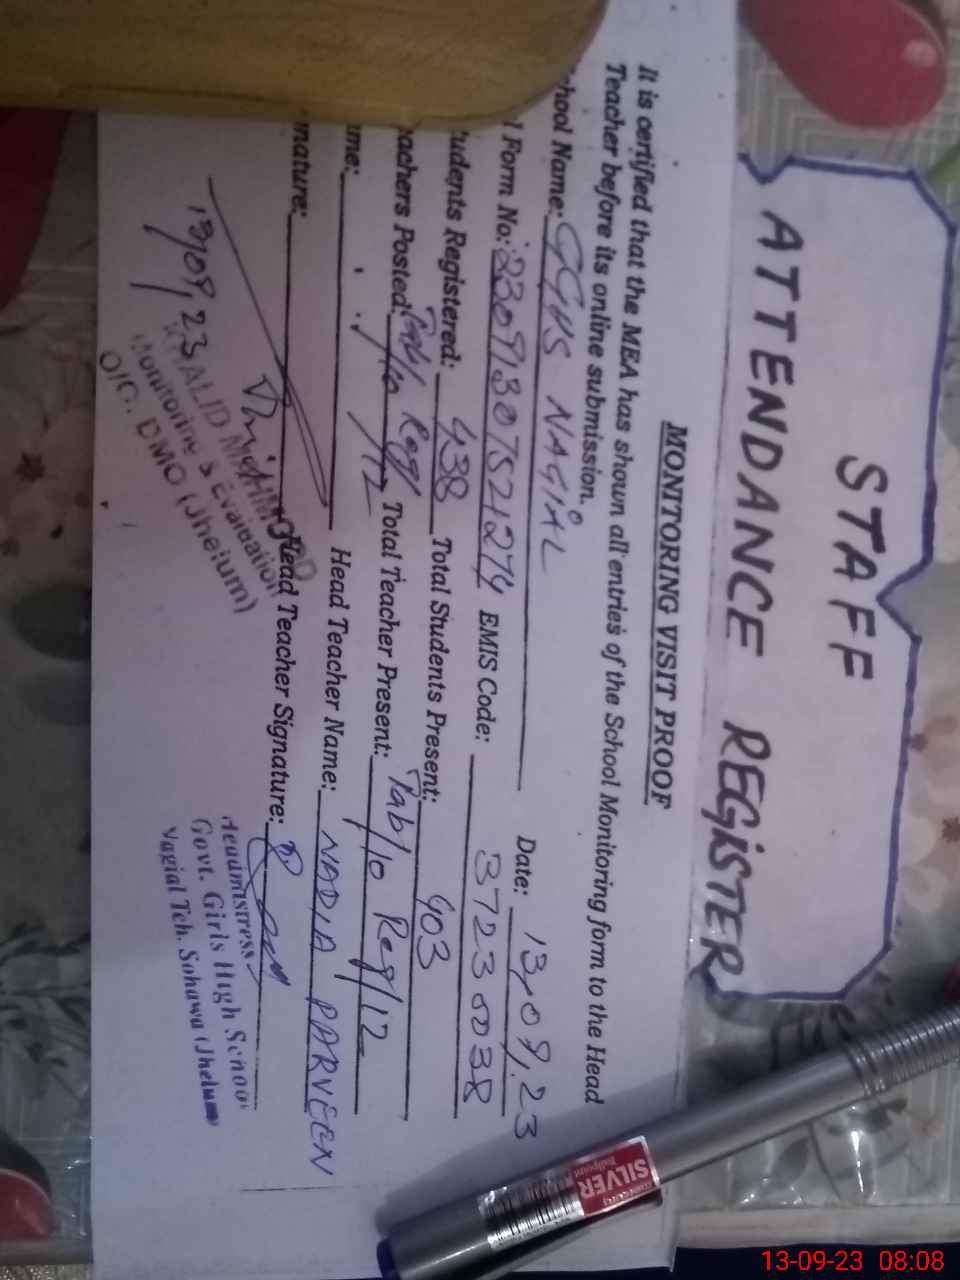 STAFF
ATTENDANCE REGISTER
MONITORING VISIT PROOF
It is certified that the MEA has shown all entries of the School Monitoring form to the Head
Teacher before its online submission.
hool Name: GGHS NAGIAL Date: 13,09,23
l Form No: EMIS Code: 37230038
tudents Registered: 438 Total Students Present: 403
achers Posted: Tab/10 Reg/12 Total Teacher Present: Tab/10 Reg/12
ame: Head Teacher Name: NADIA PARVEEN
nature: Head Teacher Signature:
13,09,23
KHALID MEHMOOD
Monitoring & Evaluation
O/O. DMO (Jhelum)
Headmistress
Govt. Girls High School
Nagial Teh. Sohawa (Jhelum
SILVER
Ballpoint
13-09-23 08:08